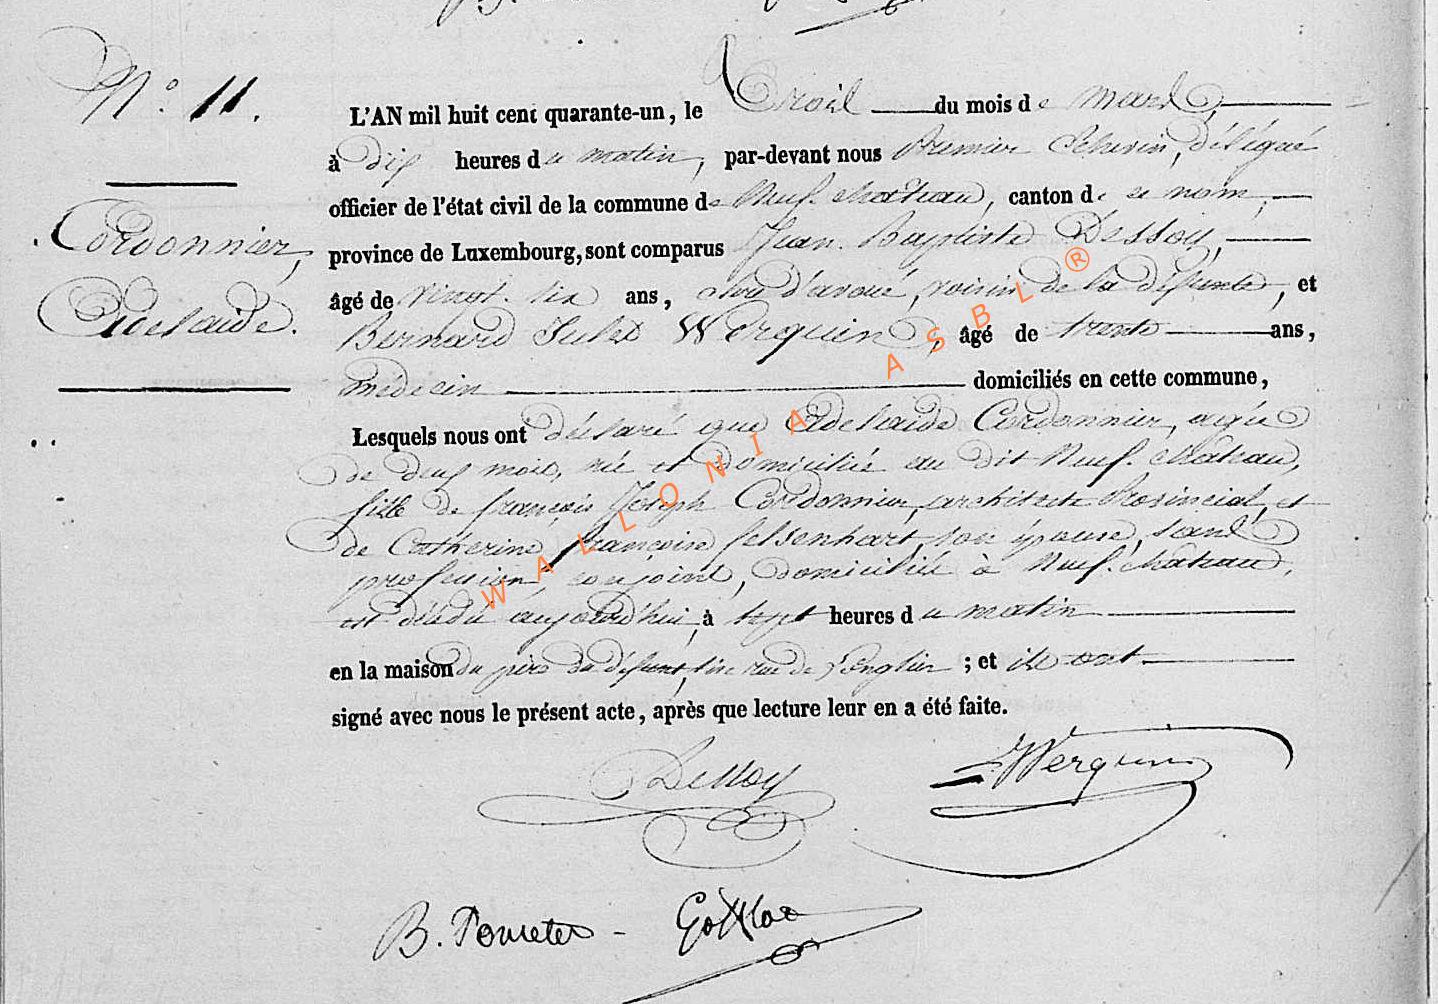 N.° 11.
L'AN mil huit cent quarante-un, le Trois du mois de mars,
à dix heures du matin, par-devant nous Premier Echevin, délégué
officier de l'état civil de la commune de Neuf-château, canton de ce nom,
Cordonnier,
province de Luxembourg, sont comparus Jean-Baptiste Dessoy,
âgé de vingt-six ans, d'avoué, voisin de la défunte, et
Adelaide.
Bernard Jules Werquin, âgé de trente ans,
médecin domiciliés en cette commune,
Lesquels nous ont déclaré que Adelaide Cordonnier, agée
de deux mois, née et domiciliée au dit Neuf-château,
fille de françois Joseph Cordonnier, architecte Provincial, et
de Catherine françoise felsenhart, son épouse, sans
profession conjoints, domiciliés à Neuf-château,
est décédé aujourd'hui, à sept heures du matin
en la maison du père du défunt, sise rue de ; et ils ont
signé avec nous le présent acte, après que lecture leur en a été faite.
Dessoy
Werquin
B.
WALLONIA ASBL ®